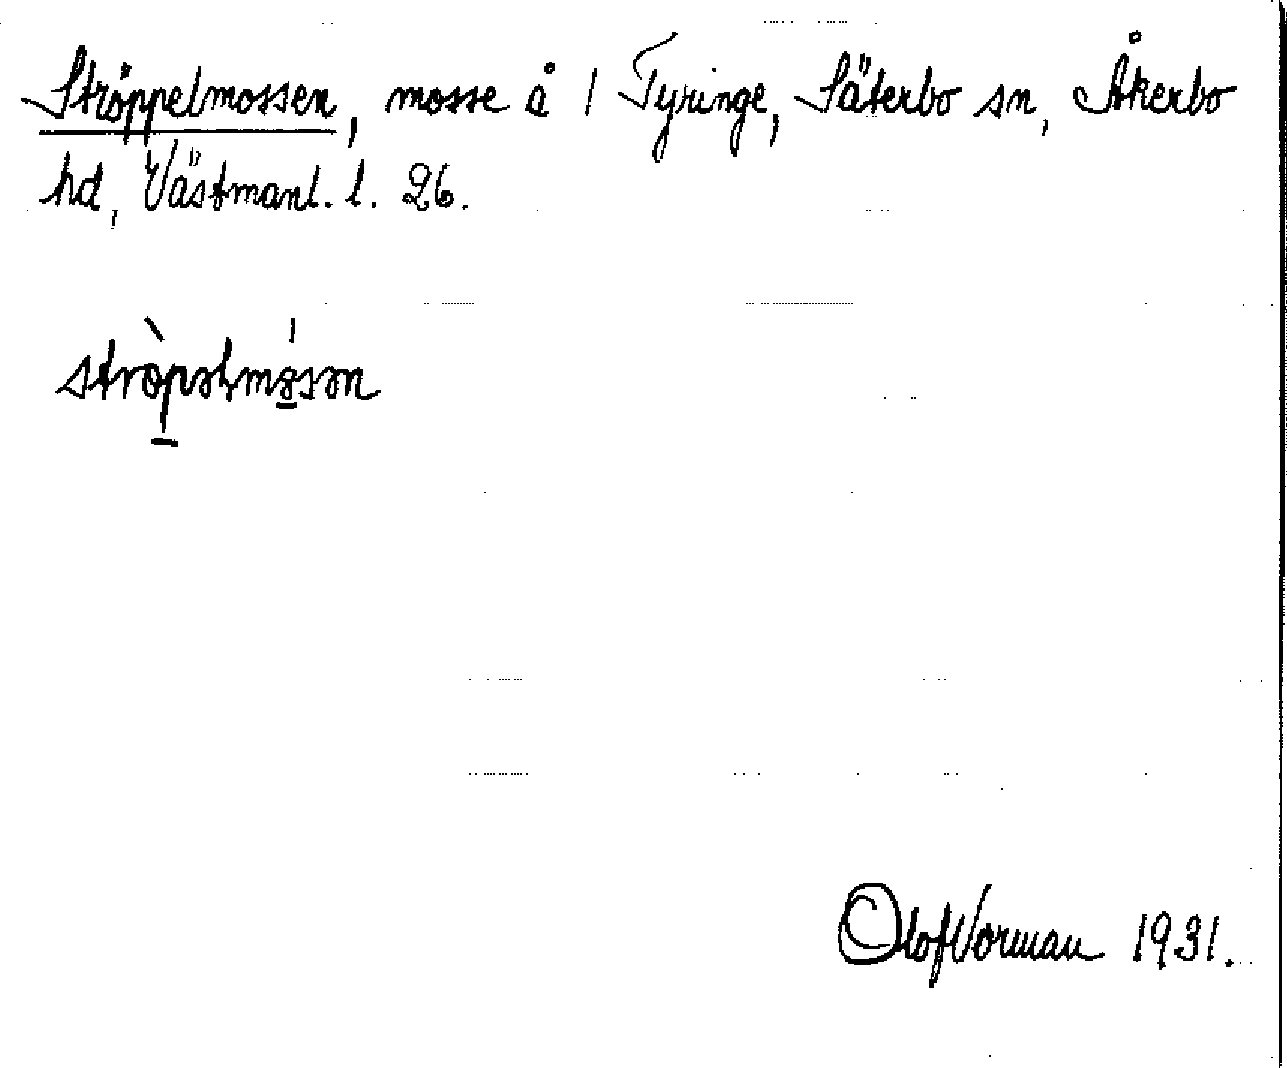 Ströppelmossen, mosse å 1 Tyringe, Säterbo sn, Åkerbo
hd, Västmanl. l. 26.
Olof Vorman 1931.